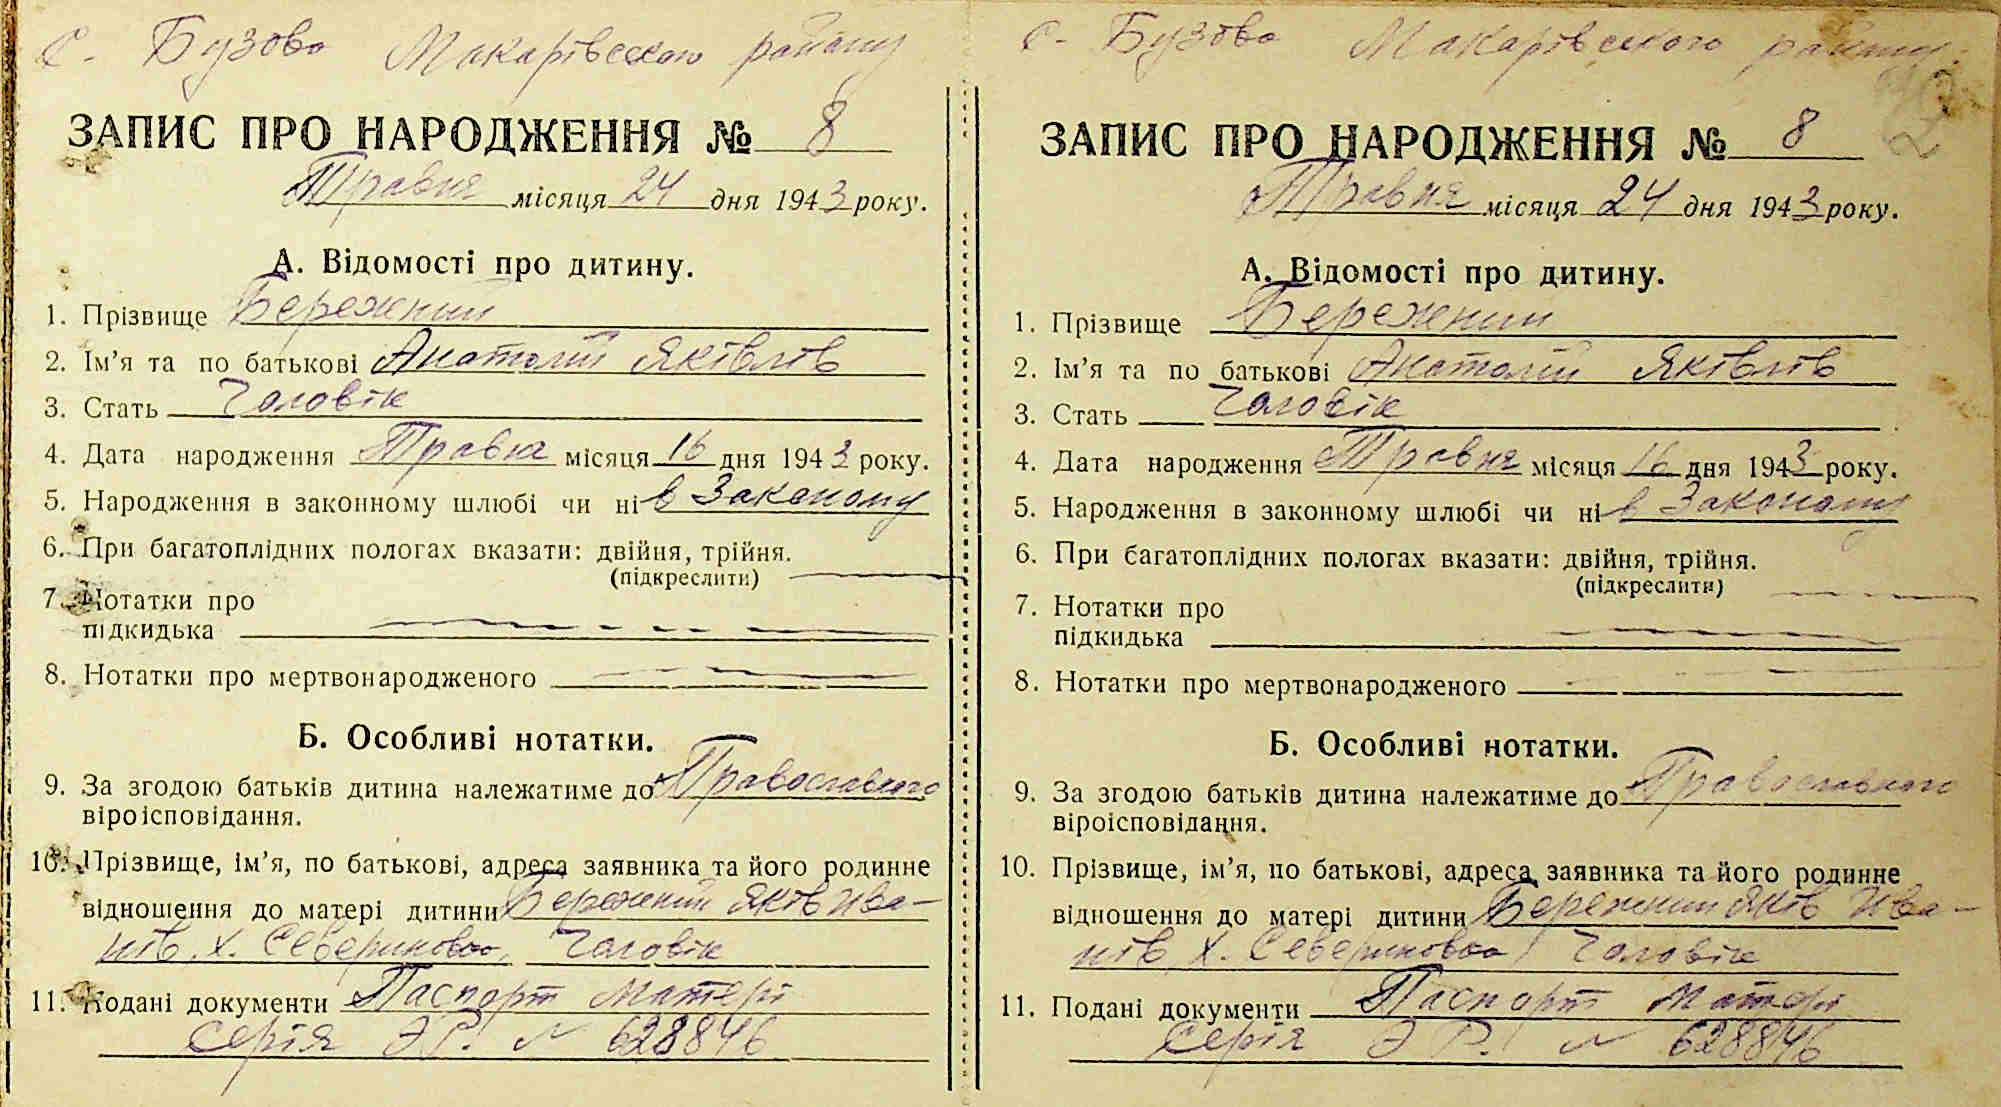 с. Бузова Макарівського району
ЗАПИС ПРО НАРОДЖЕННЯ № 8
Травня місяця 24 дня 1943 року.
А. Відомості про дитину.
1. Прізвище Бережний
2. Ім’я та по батькові Анатолій Яківлів
3. Стать Чоловік
4. Дата народження Травня місяця 16 дня 1943 року.
5. Народження в законному шлюбі чи ні в Законому
6. При багатоплідних пологах вказати: двійня, трійня.
(підкреслити)
7. Нотатки про
підкидька
8. Нотатки про мертвонародженого
Б. Особливі нотатки.
9. За згодою батьків дитина належатиме до Православного
віроісповідання.
10. Прізвище, ім’я, по батькові, адреса заявника та його родинне
відношення до матері дитини Бережний Яків Іва-
нів, Х. Севериновка, Чоловік
11. Подані документи Паспорт Матері
Серія ЭР. № 628846
с. Бузова Макарівського району
ЗАПИС ПРО НАРОДЖЕННЯ № 8
Травня місяця 24 дня 1943 року.
А. Відомості про дитину.
1. Прізвище Бережний
2. Ім’я та по батькові Анатолій Яківлів
3. Стать Чоловік
4. Дата народження Травня місяця 16 дня 1943 року.
5. Народження в законному шлюбі чи ні в Законому
6. При багатоплідних пологах вказати: двійня, трійня.
(підкреслити)
7. Нотатки про
підкидька
8. Нотатки про мертвонародженого
Б. Особливі нотатки.
9. За згодою батьків дитина належатиме до Православного
віроісповідання.
10. Прізвище, ім’я, по батькові, адреса заявника та його родинне
відношення до матері дитини Бережний Яків Іва-
нів, Х. Севериновка, Чоловік
11. Подані документи Паспорт Матері
Серія ЭР. № 628846